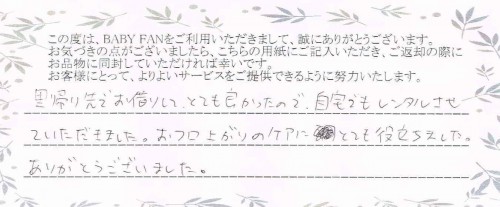 この度は、BABY FANをご利用いただきまして、誠にありがとうございます。
お気づきの点がございましたら、こちらの用紙にご記入いただき、ご返却の際に
お品物に同封していただければ幸いです。
お客様にとって、よりよいサービスをご提供できるように努力いたします。
里帰り先でお借りして、とても良かったので、自宅でもレンタルさせ
ていただきました。おフロ上がりのケアに とても役立ちました。
ありがとうございました。